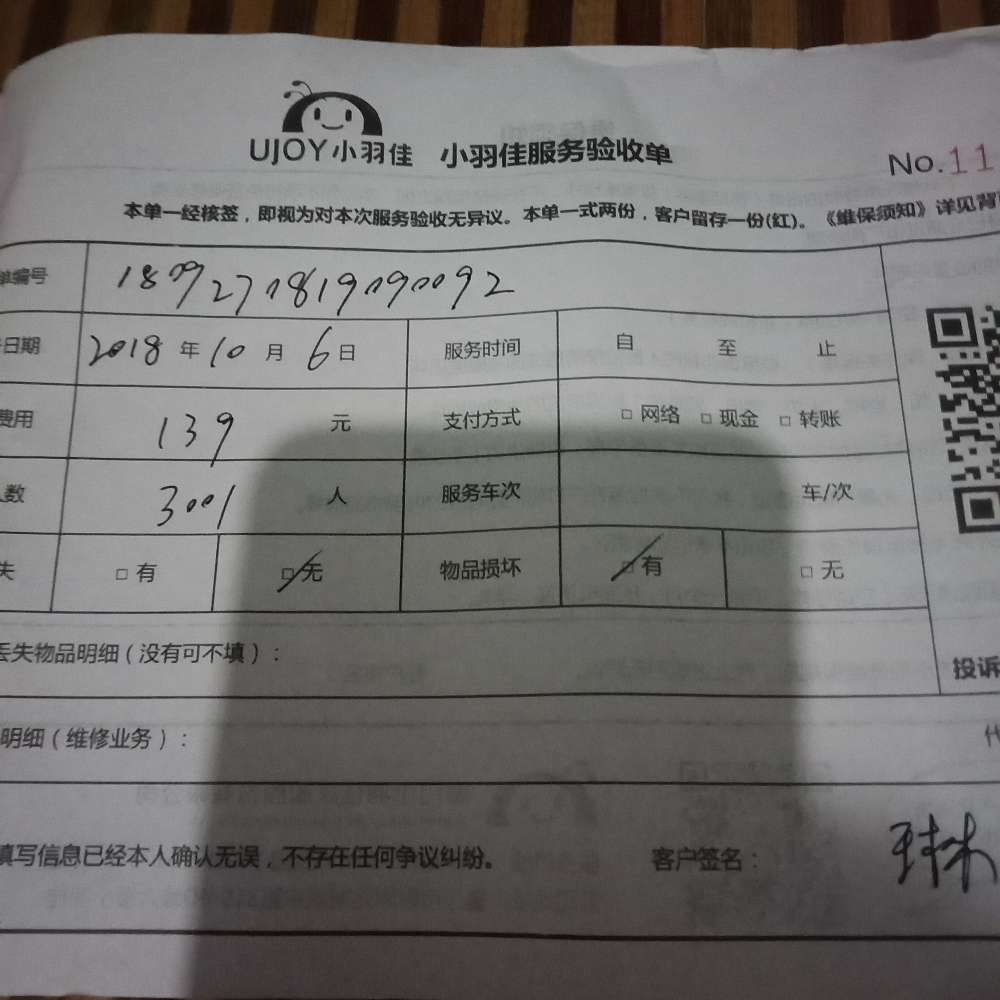 UJOY小羽佳 小羽佳服务验收单 No.11
本单一经核签，即视为对本次服务验收无异议。本单一式两份，客户留存一份(红)。《维保须知》详见背
单编号
日期 2018 年 10 月 6 日 服务时间 自 至 止
费用 139 元 支付方式 □ 网络 □ 现金 □ 转账
人数 3001 人 服务车次 车/次
失 □ 有 □ 无 物品损坏 □ 有 □ 无
丢失物品明细（没有可不填）：
投诉
明细（维修业务）：
填写信息已经本人确认无误，不存在任何争议纠纷。 客户签名：